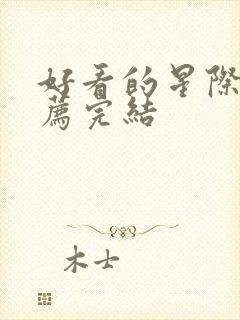 好看的星際
薦完結
木士